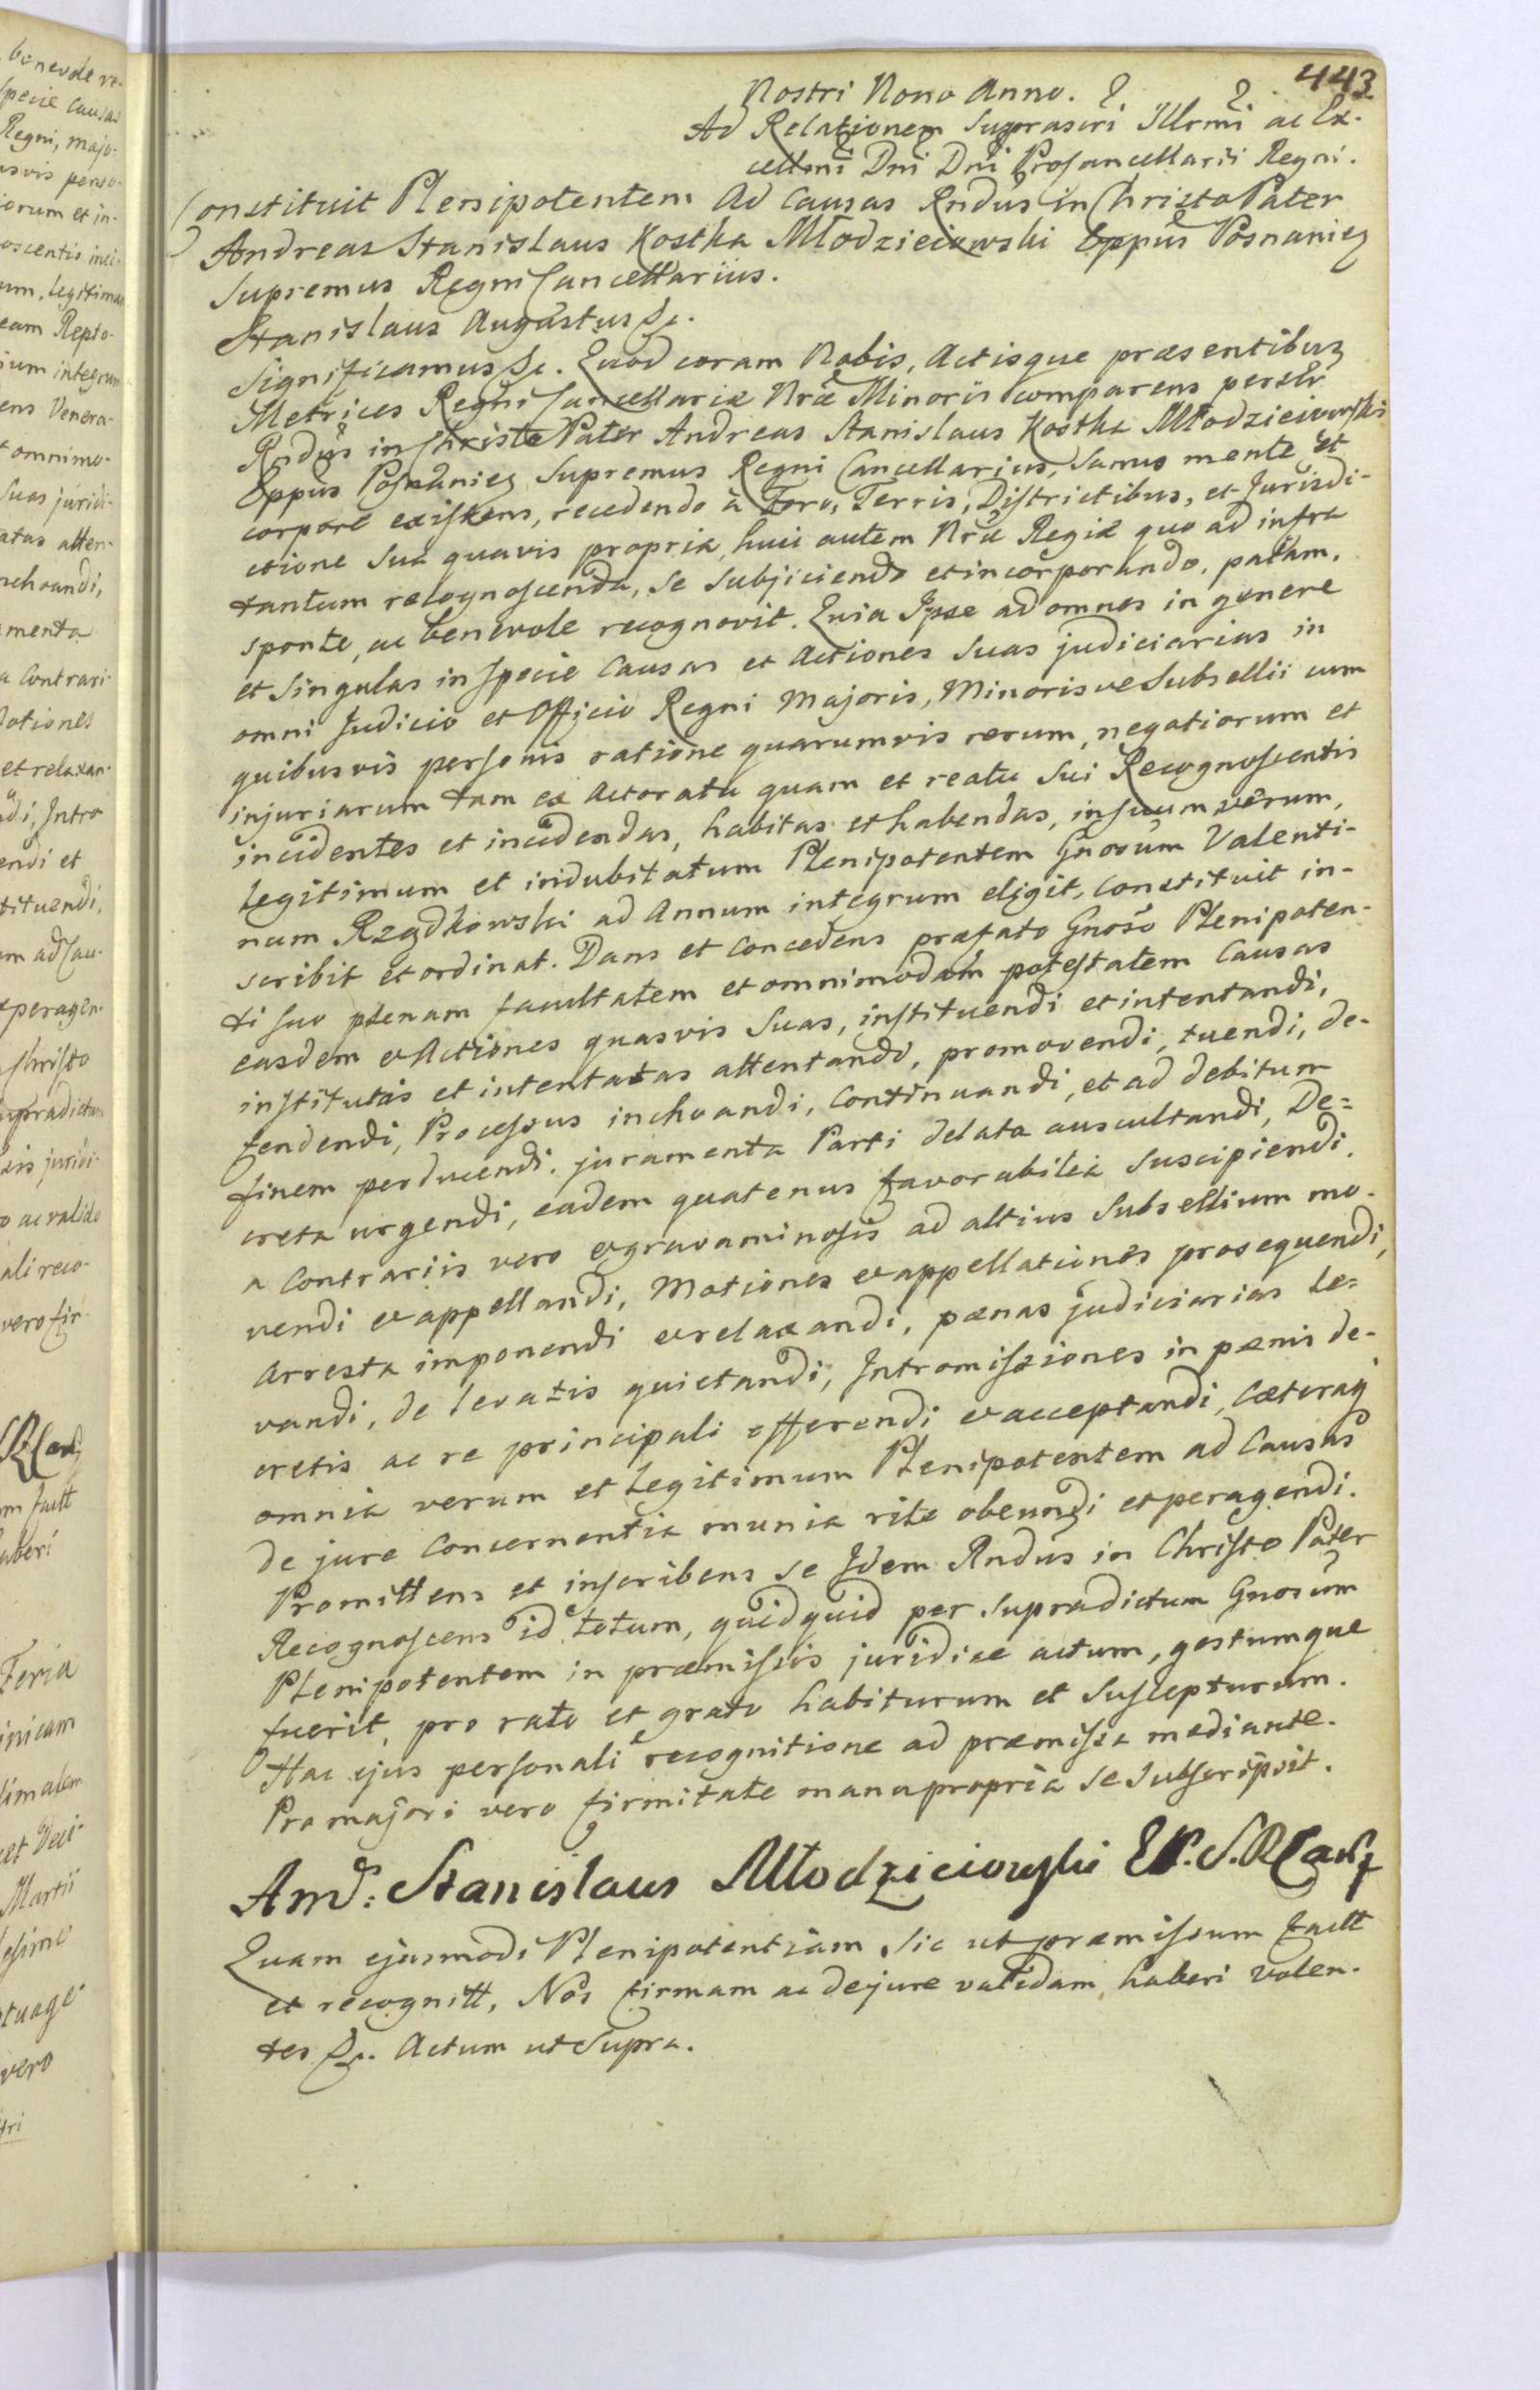 443
Nostri Nono Anno.
Ad Relationem Suprascri Illrmi ac Ex-
cellmi Dni Dni Procancellarii Regni.
Constituit Plenipotentem Ad Causas Rndus in Christo Pater
Andreas Stanislaus Kostka Młodzieiowski Eppus Posnanien
Supremus Regni Cancellarius.
Stanislaus Augustus &c.
Significamus &c. Quod coram Nobis, Actisque præsentibus
Metrices Regni Cancellariæ Nræ Minoris comparens personlr
Rndus in Christo Pater Andreas Stanislaus Kostka Młodzieiowski
Eppus Posnanien Supremus Regni Cancellarius, Sanus mente et
corpore existens, recedendo à Foro, Terris, Districtibus, et Jurisdi-
ctione Sua quavis propria, huic autem Nræ Regiæ quo ad infra
tantum recognoscenda, se Subjiciendo et incorporando, palam,
sponte, ac benevole recognovit. Quia Ipse ad omnes in genere
et Singulas in Specie Causas et Actiones Suas judiciarias in
omni Judicio et Officio Regni Majoris, Minorisve Subsellii cum
quibusvis personis ratione quarumvis rerum, negotiorum et
injuriarum tam ex Actoratu quam et reatu Sui Recognoscentis
incidentes et incidendas, habitas et habendas, in suum verum,
legitimum et indubitatum Plenipotentem Gnosum Valenti-
num Rządkowski ad Annum integrum eligit, constituit in-
scribit et ordinat. Dans et concedens præfato Gnoso Plenipoten-
ti suo plenam facultatem et omnimodam potestatem Causas
easdem et Actiones quasvis Suas, instituendi et intentandi,
institutas et intentatas attentandi, promovendi, tuendi, de-
fendendi, Processus inchoandi, Continuandi, et ad debitum
finem perducendi. juramenta Parti delata auscultandi, De=
creta urgendi, eadem quatenus favorabilia Suscipiendi,
a Contrariis vero et gravaminosis ad altius Subsellium mo-
vendi et appellandi, Motiones et appellationes prosequendi,
Arresta imponendi et relaxandi, pænas judiciarias le=
vandi, de levatis quietandi, Intromissiones in pænis de-
cretis ac re principali offerendi et acceptandi, Cæteraq
omnia verum et Legitimum Plenipotentem ad Causas
de jure Concernentia munia rite obeundi et peragendi.
Promittens et inscribens se Idem Rndus in Christo Pater
Recognoscens id totum, quidquid per Supradictum Gnosum
Plenipotentem in præmissis juridice actum, gestumque
fuerit, pro rato et grato habiturum et Suscepturum.
Hac ejus personali recognitione ad præmissa mediante.
Pro majori vero firmitate manu propria se Subscripsit.
And: Stanislaus Młodzieiowski EP. S. R Canc
Quam ejusmodi Plenipotentiam Sic ut præmissum factt
et recognitt, Nos firmam ac de jure validam haberi volen-
tes &c. Actum ut Supra.